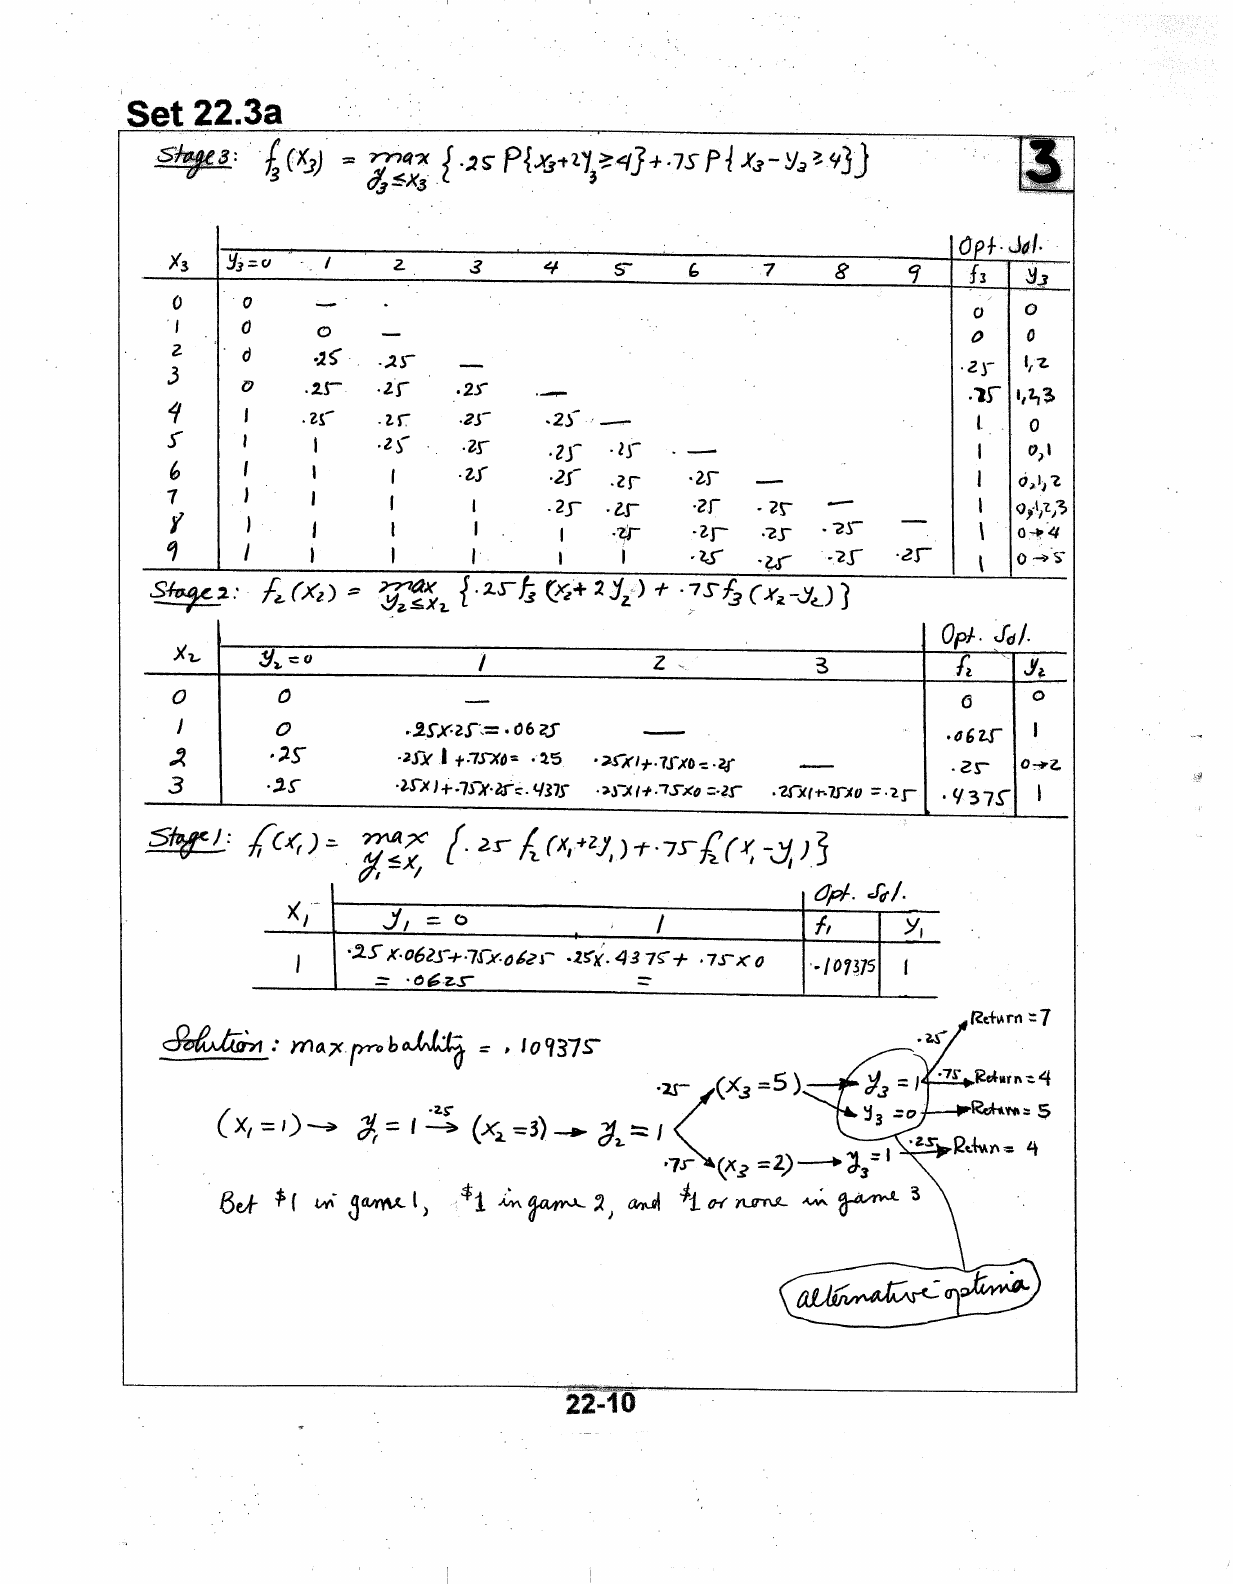 Set 22.3a
3
Stage 3: f₃(x₃) = max {.25 P{x₃+2y₃≥4}+.75 P{x₃-y₃≥4}}
y₃≤x₃
Opt. Sol.
x₃ y₃=0 1 2 3 4 5 6 7 8 9 f₃ y₃
0 0 — 0 0
1 0 0 — 0 0
2 0 .25 .25 — .25 1,2
3 0 .25 .25 .25 — .25 1,2,3
4 1 .25 .25 .25 .25 — 1 0
5 1 1 .25 .25 .25 .25 — 1 0,1
6 1 1 1 .25 .25 .25 .25 — 1 0,1,2
7 1 1 1 1 .25 .25 .25 .25 — 1 0,1,2,3
8 1 1 1 1 1 .25 .25 .25 .25 — 1 0→4
9 1 1 1 1 1 1 .25 .25 .25 .25 1 0→5
Stage 2: f₂(x₂) = max {.25 f₃(x₂+2y₂) + .75 f₃(x₂-y₂)}
y₂≤x₂
Opt. Sol.
x₂ y₂=0 1 2 3 f₂ y₂
0 0 — 0 0
1 0 .25x.25=.0625 — .0625 1
2 .25 .25x1+.75x0=.25 .25x1+.75x0=.25 — .25 0→2
3 .25 .25x1+.75x.25=.4375 .25x1+.75x0=.25 .25x1+.75x0=.25 .4375 1
Stage 1: f₁(x₁) = max {.25 f₂(x₁+2y₁)+.75 f₂(x₁-y₁)}
y₁≤x₁
Opt. Sol.
x₁ y₁=0 1 f₁ y₁
1 .25x.0625+.75x.0625 .25x.4375+.75x0 .109375 1
= .0625 =
Return=7
.25
Solution: max probability = .109375
.25 (x₃=5) → y₃=1 .75 Return=4
y₃=0 → Return=5
(x₁=1) → y₁=1 .25→ (x₂=3) → y₂=1
.75 (x₃=2) → y₃=1 .25 Return=4
Bet $1 in game 1, $1 in game 2, and $1 or none in game 3
alternative optima
22-10